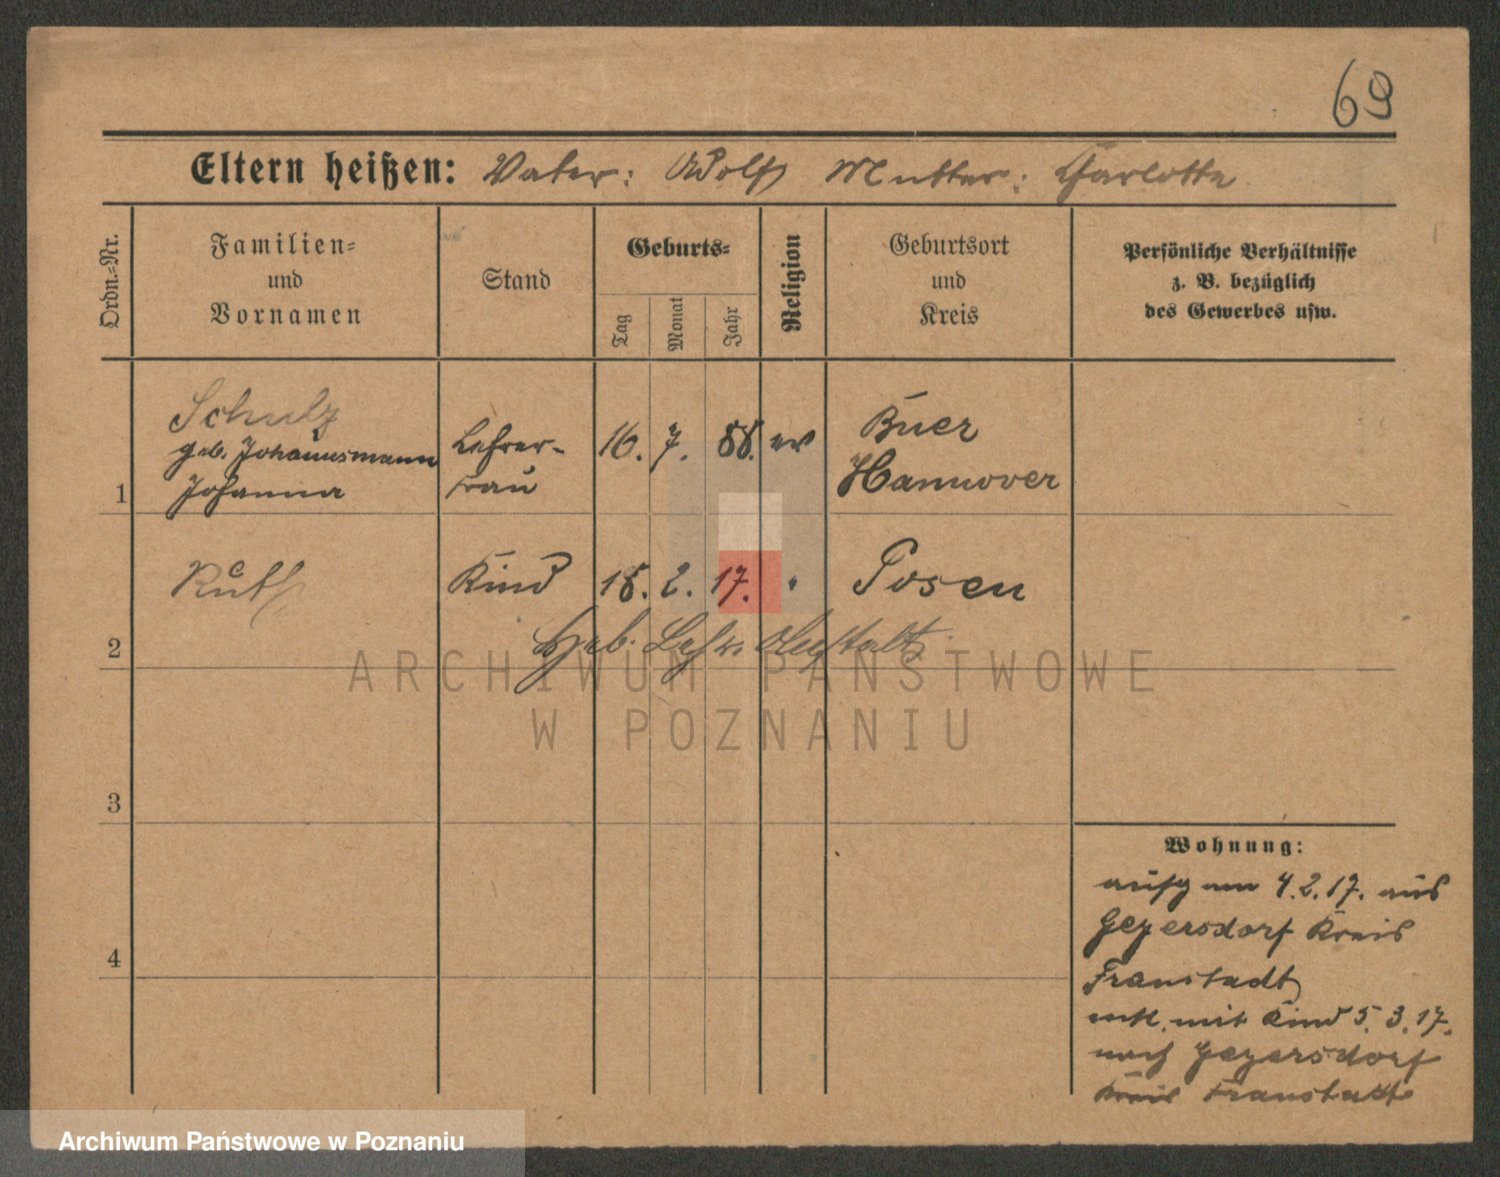 69
Eltern heißen: Vater: Adolf Mutter: Charlotte
Ordn.-Nr.
Familien- und Vornamen
Stand
Geburts-
Tag
Monat
Jahr
Religion
Geburtsort und Kreis
Persönliche Verhältnisse z. B. bezüglich des Gewerbes usw.
1
Schulz
geb. Johannsmann
Johanna
Lehrer-
frau
16. 7. 88. ev
Buer
Hannover
2
Ruth
Kind
18. 2. 17. "
Posen
Heb. Lehr. Anstalt
3
4
Wohnung:
aufg am 4.2.17. aus
Geyersdorf Kreis
Fraustadt
entl. mit Kind 5.3.17.
nach Geyersdorf
Kreis Fraustadt
ARCHIWUM PAŃSTWOWE
W POZNANIU
Archiwum Państwowe w Poznaniu